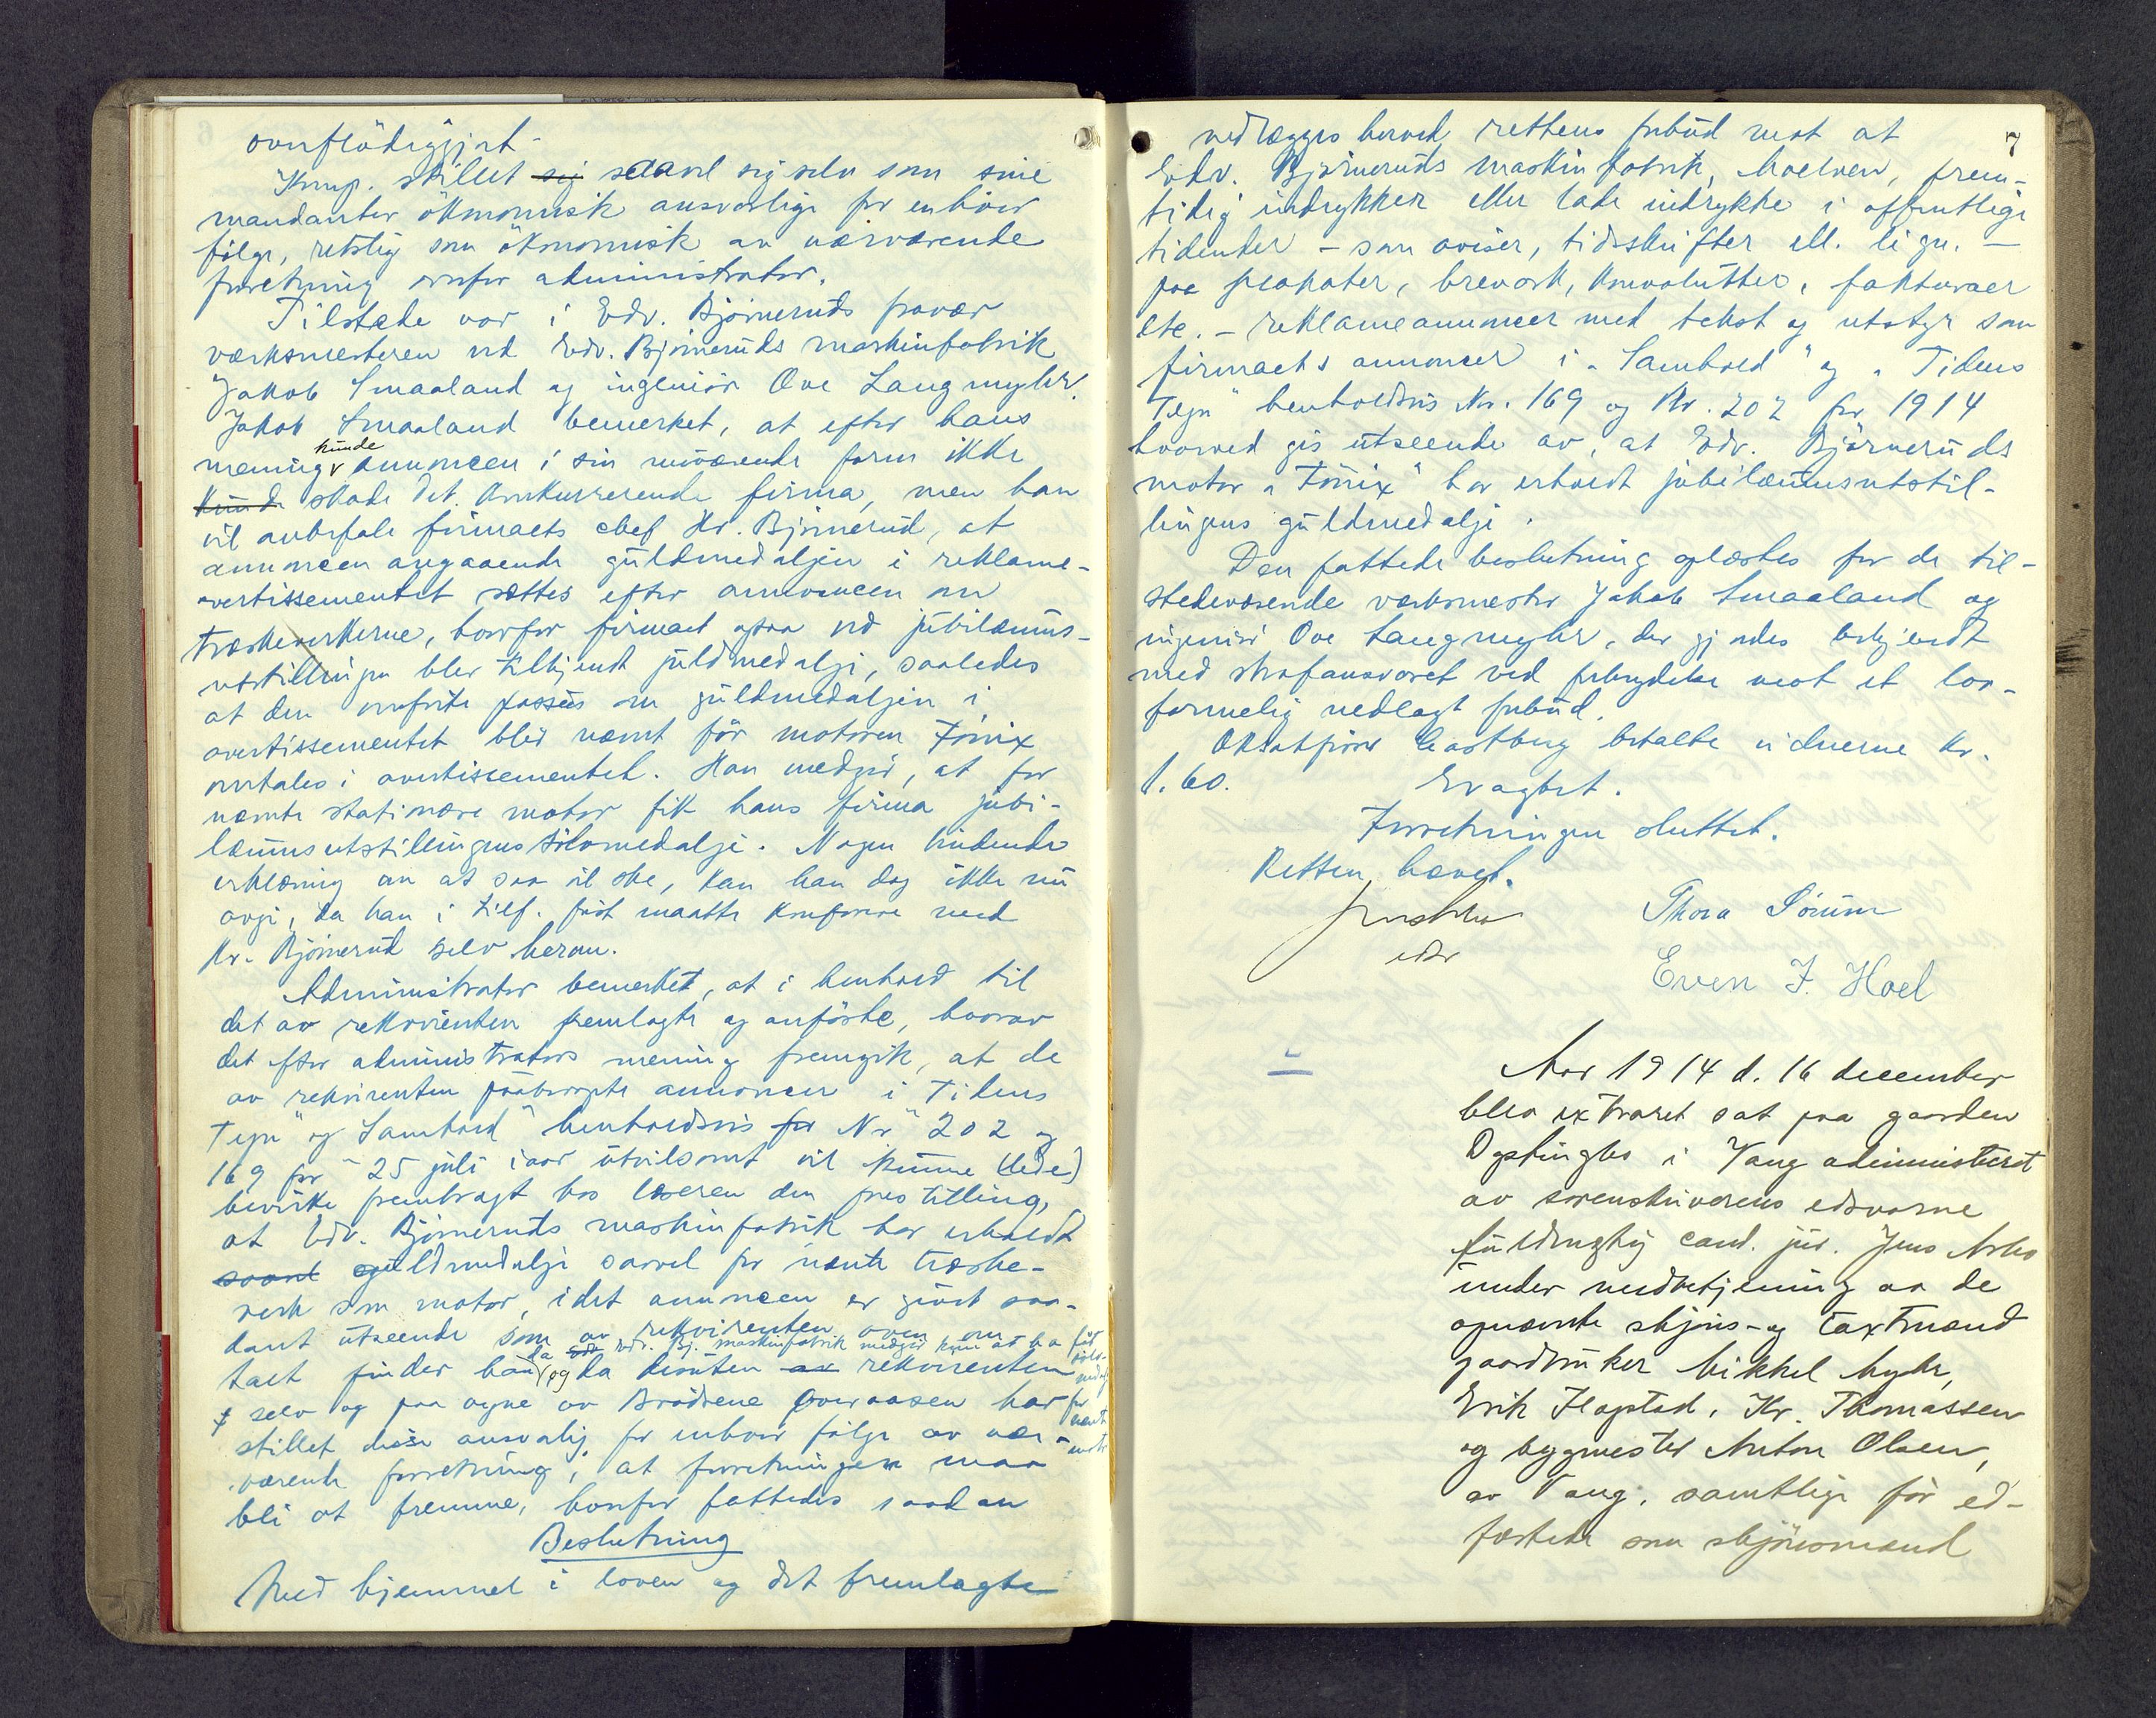 overflödiggjort.
Komp. stillet saavel sig selv som sine
mandanter ökonomisk ansvarlige for enhver
følge, retslig som ökonomisk av nærværende
forretning overfor administrator.
Tilstede var i Edv. Bjørneruds fravær
verksmesteren ved Edv. Bjørneruds maskinfabrik
Jakob Smaaland og ingeniør Ove Langmyhr.
Jakob Smaaland bemerket, at efter hans
mening kunde annoncen i sin nuværende form ikke
kunde skade det konkurrerende firma, men han
vil anbefale firmaets chef Hr. Bjørnerud, at
annoncen angaaende guldmedaljen i reklame-
avertissementet sættes efter annoncen om
træskeverkerne, hvorfor firmaet ogsaa ved jubilæums-
utstillingen blev tilkjendt guldmedalje, saaledes
at den omførte passus om guldmedaljen i
avertissementet blir nævnt før motoren Fönix
omtales i avertissementet. Han medgir, at for
nævnte stationære motor fik hans firma jubi-
læumsutstillingens sölvmedalje. Nogen bindende
erklæring om at saa vil ske, kan han dog ikke nu
avgi, da han i tilf. først maatte konferere med
Hr. Bjørnerud selv herom.
Administrator bemerket, at i henhold til
det av rekvirenten fremlagte og anførte, hvorav
det efter administrators mening fremgik, at de
av rekvirenten paaberopte annoncer i "Tidens
Tegn" og "Samhold" henholdsvis for Nr 202 og
169 for 25 juli iaar utvilsomt vil kunne (lede)
bevirke frembragt hos læseren den forestilling,
at Edv. Bjørneruds maskinfabrik har erholdt
saavel guldmedalje saavel for nævnte træske-
verk som motor, idet annoncen er givet saa-
dant utseende som av rekvirenten oven om
da Edv. Bj. maskinfabrik medgir kun at ha faat
sölv-
medalj
for
nævnte
motor
talt finder han og da desuten rekvirenten
selv og paa egne av Brødrene Overaasen har
stillet disse ansvarlig for enhver følge av nær-
værende forretning, at forretningen maa
bli at fremme, hvorfor fattedes saadan
Beslutning
Med hjemmel i loven og det fremlagte
7
nedlægges herved rettens forbud mot at
Edv. Bjørneruds maskinfabrik, Moelven, frem-
tidig indrykker eller lade indrykke i offentlige
tidender – som aviser, tidsskrifter ell. lign. –
paa plakater, brevark, konvolutter, fakturaer
etc. – reklameannoncer med tekst og utstyr som
firmaets annoncer i "Samhold" og "Tidens
Tegn" henholdsvis Nr. 169 og Nr. 202 for 1914
hvorved gis utseende av, at Edv. Bjørneruds
motor "Fönix" har erholdt jubilæumsutstil-
lingens guldmedalje.
Den fattede beslutning oplæstes for de til-
stedeværende verksmester Jakob Smaaland og
ingeniør Ove Langmyhr, der gjordes bekjendt
med strafansvaret ved forbrydelse mot et lov-
formelig nedlagt forbud.
Oksatfører Castberg betalte vidnerne Kr.
1.60.
Evagtet.
Forretningen sluttet.
Retten hævet.
Thora Sörum
Even J. Hoel
Aar 1914 d. 16 december
blev extraret sat paa gaarden
Dystingbo i Vang administreret
av sorenskriverens edsvorne
fuldmægtig cand. jur. Jens Arbo
under medbetjening av de
opnævnte skjøns- og taxtmænd
gaardbruker Mikkel Myhr,
Erik Flagstad, Kr. Thomassen
og bygmester Anton Olsen,
av Vang, samtlige før ed-
fæstede som skjønsmænd